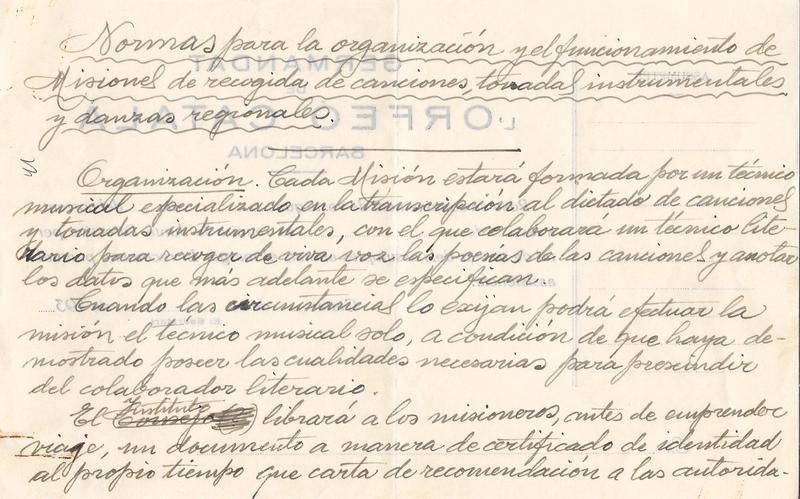 Normas para la organización y el funcionamiento de
Misiones de recogida de canciones, tonadas instrumentales
y danzas regionales.
Organización. Cada Misión estará formada por un técnico
musical especializado en la transcripción al dictado de canciones
y tonadas instrumentales, con el que colaborará un técnico lite-
rario para recoger de viva voz las poesías de las canciones y anotar
los datos que más adelante se especifican.
Cuando las circunstancias lo exijan podrá efectuar la
misión el técnico musical solo, a condición de que haya de-
mostrado poseer las cualidades necesarias para prescindir
del colaborador literario.
Instituto
El Consejo librará a los misioneros, antes de emprender
viaje, un documento a manera de certificado de identidad
al propio tiempo que carta de recomendación a las autorida-
GERMANDAT
DE
L'ORFEÓ CATALÀ
BARCELONA